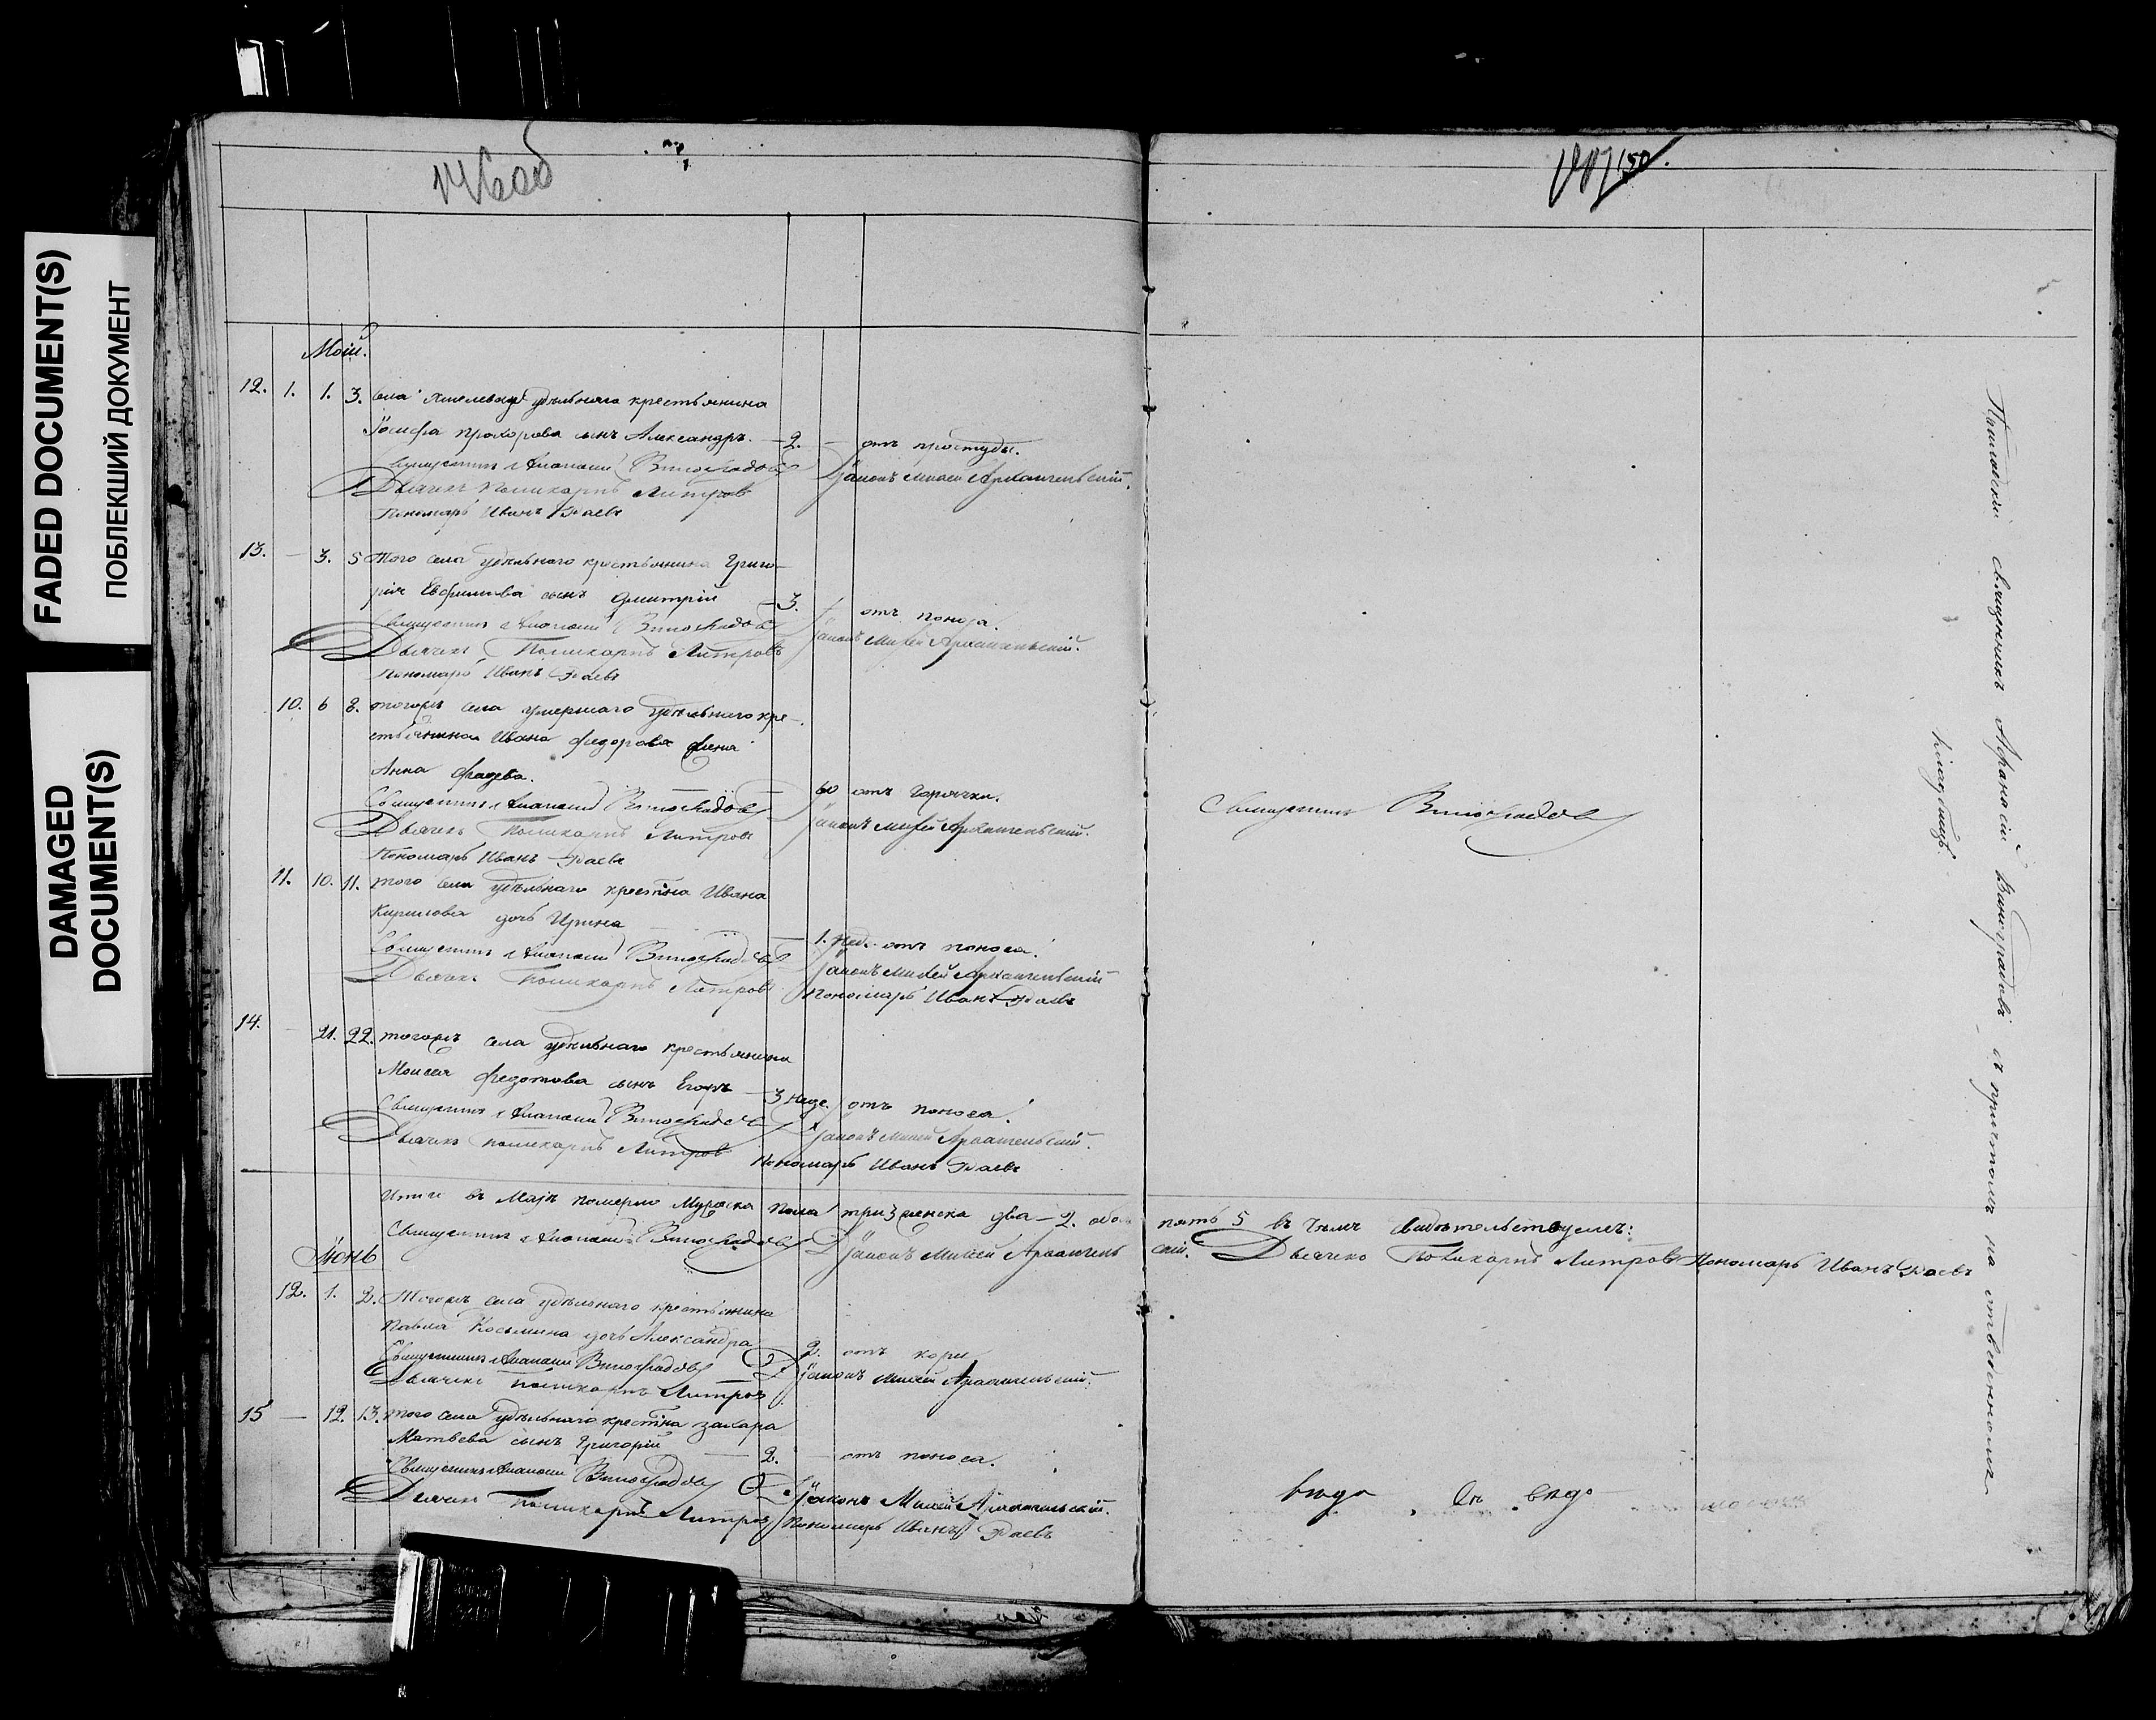 FADED DOCUMENT(S)
ПОБЛЕКШИЙ ДОКУМЕНТ
DAMAGED
DOCUMENT(S)
146 об
150.
Маій.
12. 1. 1. 3. села удѣльнаго крестьянина
Іосифа Прохорова сынъ Александръ. — 2. — отъ простуды.
Священникъ Аѳанасій Виноградовъ Діаконъ Михей Архангельскій.
Дьячекъ Поликарпъ Литровъ
Пономарь Иванъ Фаевъ
13. — 3. 5 Того села удѣльнаго крестьянина Григо-
рія Евфимова сынъ Дмитрій — 3. отъ поноса.
Священникъ Аѳанасій Виноградовъ Діаконъ Михей Архангельскій.
Дьячекъ Поликарпъ Литровъ
Пономарь Иванъ Фаевъ
10. 6 8. тогожъ села умершаго удѣльнаго кре-
стьянина Ивана Федорова жена
Анна Фадева. — 60 отъ горячки.
Священникъ Аѳанасій Виноградовъ Діаконъ Михей Архангельскій.
Дьячекъ Поликарпъ Литровъ
Пономарь Иванъ Фаевъ
11. 10. 11. того села удѣльнаго крестьна Ивана
Кирилова дочь Ирина — 1. нед. отъ поноса.
Священникъ Аѳанасій Виноградовъ Діаконъ Михей Архангельскій
Дьячекъ Поликарпъ Литровъ Пономарь Иванъ Фаевъ
14. — 21. 22. тогожъ села удѣльнаго крестьянина
Моисея Федотова сынъ Егоръ — 3 неде. отъ поноса.
Священникъ Аѳанасій Виноградовъ Діаконъ Михей Архангельскій.
Дьячекъ Поликарпъ Литровъ Пономарь Иванъ Фаевъ
Итаго въ Маіѣ померло Мужска пола три 3 женска два — 2. обоего пять 5 въ чемъ свидѣтельствуемъ:
Священникъ Аѳанасій Виноградовъ Діаконъ Михей Архангельскій. Дьячекъ Поликарпъ Литровъ Пономарь Иванъ Фаевъ
Іюнь
12. 1. 2. Тогожъ села удѣльнаго крестьянина
Павла Косьмина дочь Александра 2. отъ кори
Священникъ Аѳанасій Виноградовъ Діаконъ Михей Архангельскій.
Дьячекъ Поликарпъ Литровъ
15 — 12. 13. того села удѣльнаго крестьна Захара
Матвѣева сынъ Григорій — 2. — отъ поноса.
Священникъ Аѳанасій Виноградовъ Діаконъ Михей Архангельскій.
Дьячекъ Поликарпъ Литровъ Пономарь Иванъ Фаевъ
Священникъ Виноградовъ
священникъ Афанасій Виноградовъ съ причтомъ на
кладбищѣ.